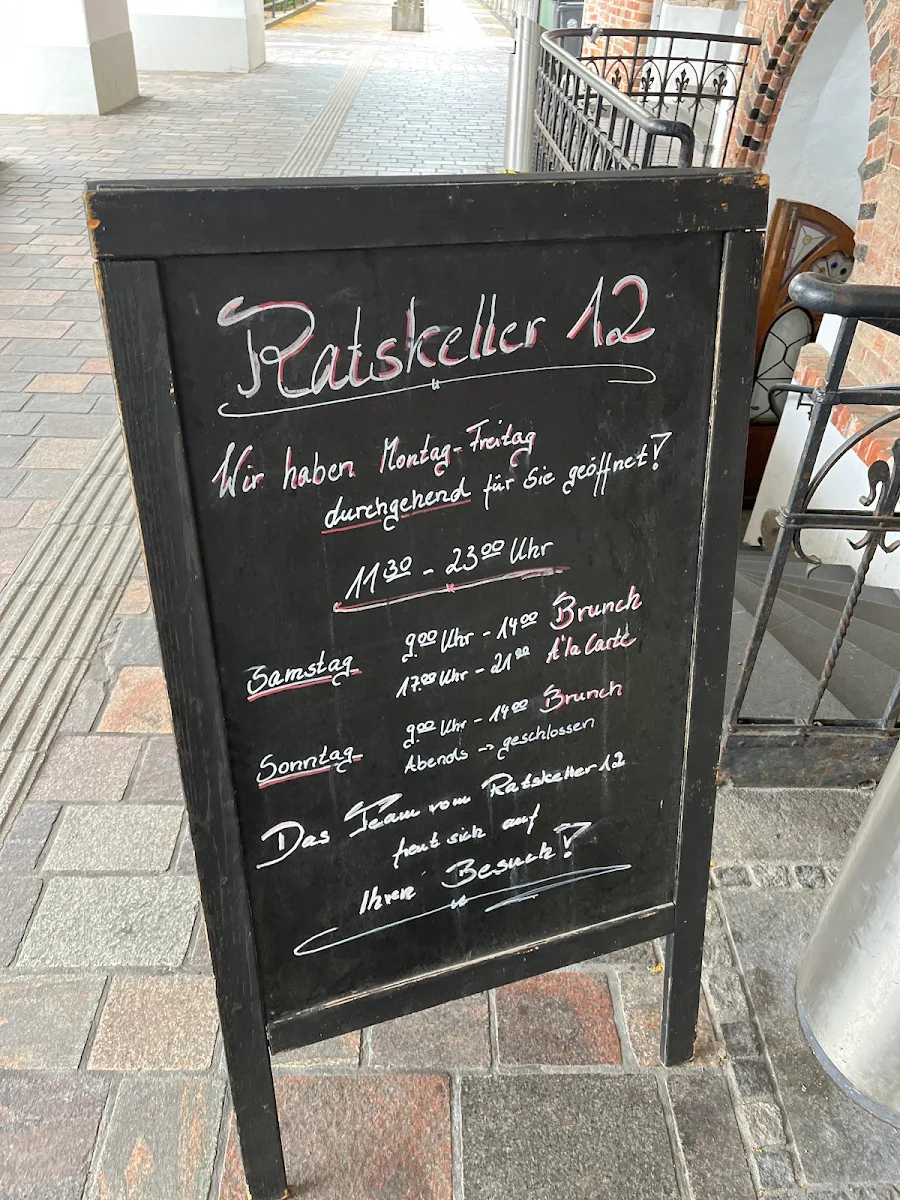 Ratskeller 12
Wir haben Montag-Freitag
durchgehend für Sie geöffnet!
11³⁰ - 23⁰⁰ Uhr
Samstag 9⁰⁰ Uhr - 14⁰⁰ Brunch
17.⁰⁰ Uhr - 21⁰⁰ A'la Carte
Sonntag 9⁰⁰ Uhr - 14⁰⁰ Brunch
Abends → geschlossen
Das Team vom Ratskeller 12
freut sich auf
Ihren Besuch!